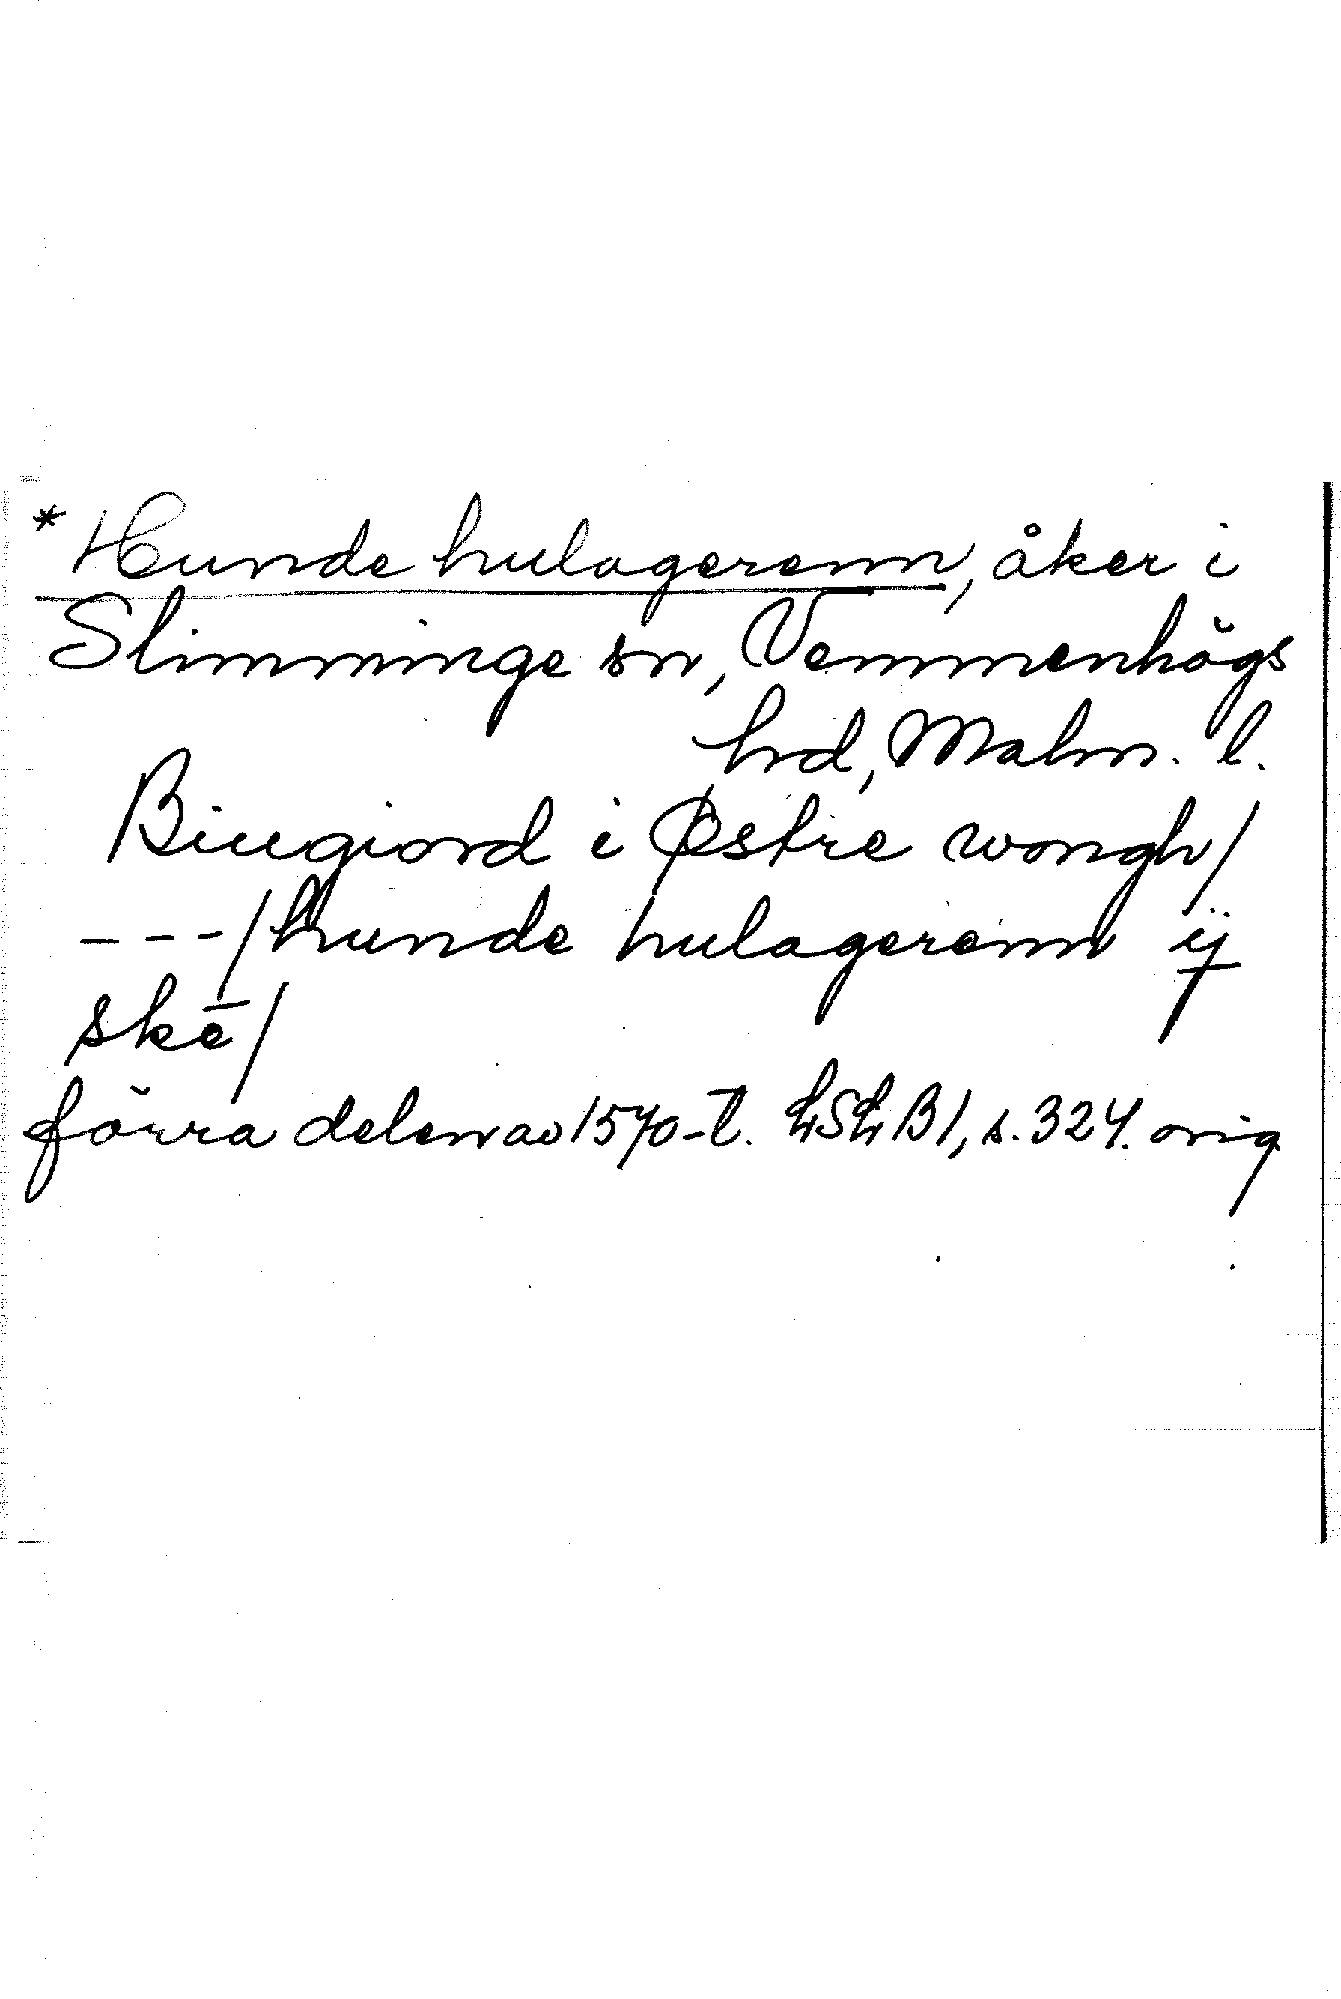 *Hunde hulagerenn, åker i
Slimminge sn, Vemmenhögs
hrd, Malm. l.
Biugiord i Østre wongh/
---/hunde hulagerenn ij
skē/
förra delen av 1570-t. LSLB1, s. 324. orig